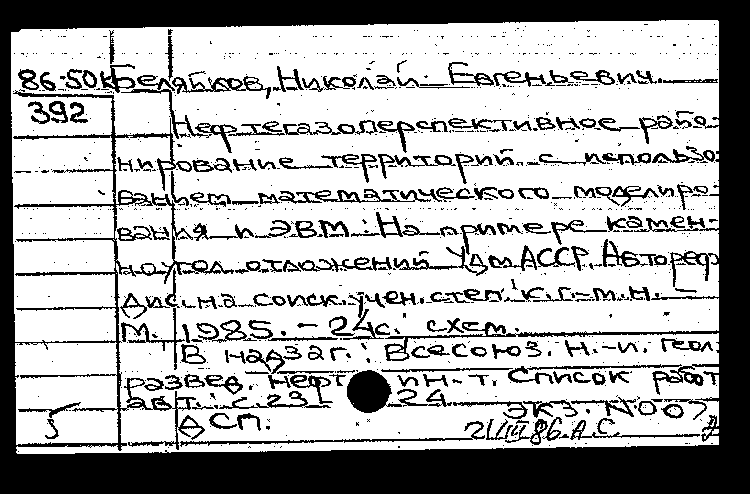 86-50к Беляйков, Николай Евгеньевич.
392
Нефтегазоперспективное райо-
нирование территорий с использо-
ванием математического моделиро-
вания и ЭВМ: На примере камен-
ноугол. отложений УдмАССР. Автореф.
Дис. на соиск. учен. степ. к. г.-м. н. –
М. 1985. – 24с. схем.
В надзаг.: Всесоюз. н.-и. геол.
развед. нефт. ин-т. Список работ
авт.: с. 23 24
Экз. N007
5 ДСП.
21/III 86. А.С.